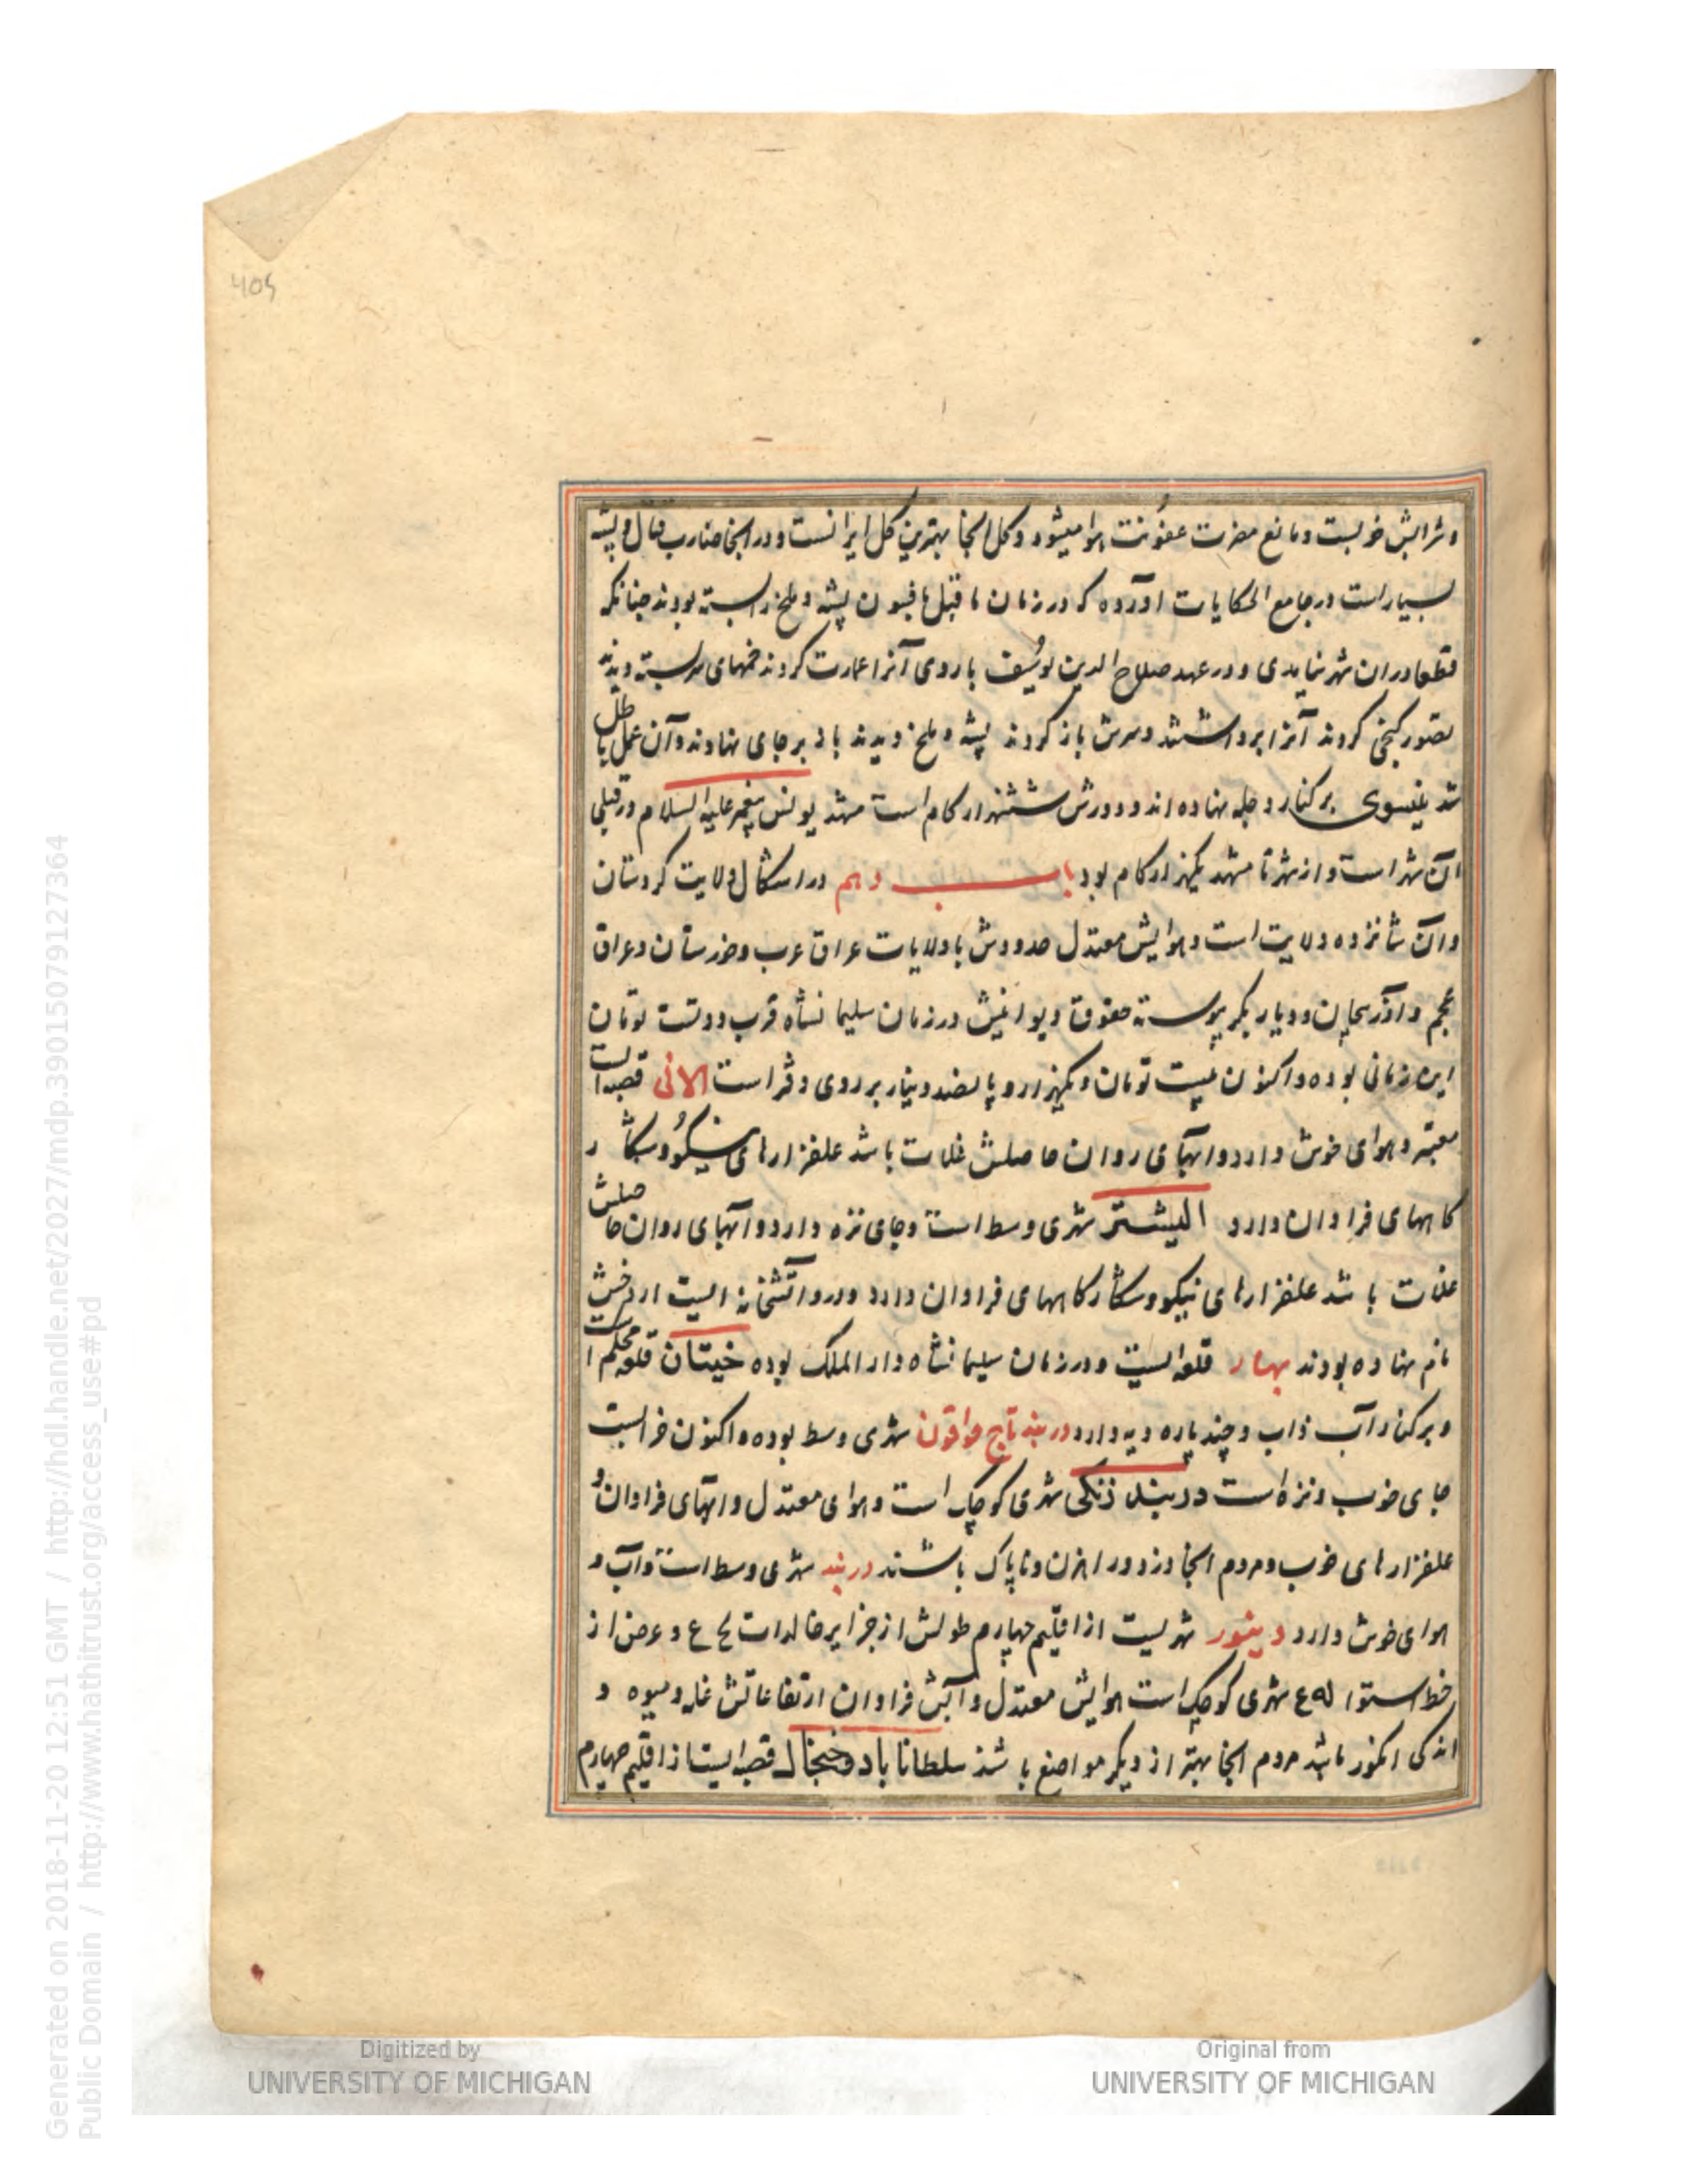 409
وشرابش خوبست ومانع مضرت عفونت هوا میشود وکل انجا بهترین کل ایرانست ودر انجا مضارب قتال وپشه
بسیار است در جامع الحکایات اورده که در زمان ما قبل بافسون پشه وملخ را بسته بودند چنانکه
قطعا دران شهر نیامدی ودر عهد صلاح الدین یوسف باروی آنرا عمارت کردند خمهای سربسته دیدند
تصور گنجی کردند آنرا برداشتند وسرش باز کردند پشه وملخ دیدند باز برجای نهادند وآن عمل باطل
شد نینوی بر کنار دجله نهاده اند ودورش ششهزار کام است مشهد یونس پیغمبر علیه السلام در قبلی
آن شهر است واز شهر تا مشهد یکهزار کام بود باب دهم در اشکال ولایت کردستان
وآن شانزده ولایت است وهوایش معتدل حدودش با ولایات عراق عرب وخوزستان وعراق
عجم واذربیجان ودیار بکر پیوسته حقوق دیوانیش در زمان سلیمانشاه قرب دویست تومان
این زمانی بوده واکنون بیست تومان ویکهزار وپانصد دینار بر روی دفتر است الانی قصبه است
معتبر وهوای خوش دارد وابهای روان حاصلش غلات باشد علفزارهای نیکو وشکار
کاههای فراوان دارد الیشتر شهری وسط است وجای نزه دارد وآبهای روان حاصلش
غلات باشد علفزارهای نیکو وشکارکاههای فراوان دارد ودرو آتشخانه ایست اردخش
نام نهاده بودند بهار قلعه ایست ودر زمان سلیمانشاه دار الملک بوده خیتان قلعه محکم است
وبر کنار آب زاب وچند پاره دیه دارد دربند تاج خواتون شهری وسط بوده واکنون خرابست
جای خوب ونزه است دربند زنکی شهری کوچک است وهوای معتدل وابهای فراوان و
علفزارهای خوب ومردم انجا دزد وراهزن وناپاک باشند دربند شهری وسط است وآب و
هوای خوش دارد دینور شهریست از اقلیم چهارم طولش از جزایر خالدات لح ع وعرض از
خط استوا له ع شهری کوچک است هوایش معتدل وآبش فراوان ارتفاعاتش غله ومیوه و
اندکی انکور باشد مردم انجا بهتر از دیکر مواضع باشند سلطاناباد وخبجال قصبه ایست از اقلیم چهارم
Digitized by
UNIVERSITY OF MICHIGAN
Original from
UNIVERSITY OF MICHIGAN
Generated on 2018-11-20 12:51 GMT / http://hdl.handle.net/2027/mdp.39015079127364
Public Domain / http://www.hathitrust.org/access_use#pd